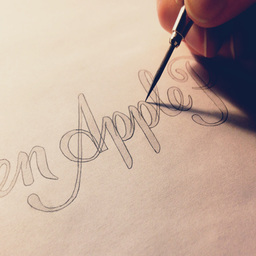 en Apple